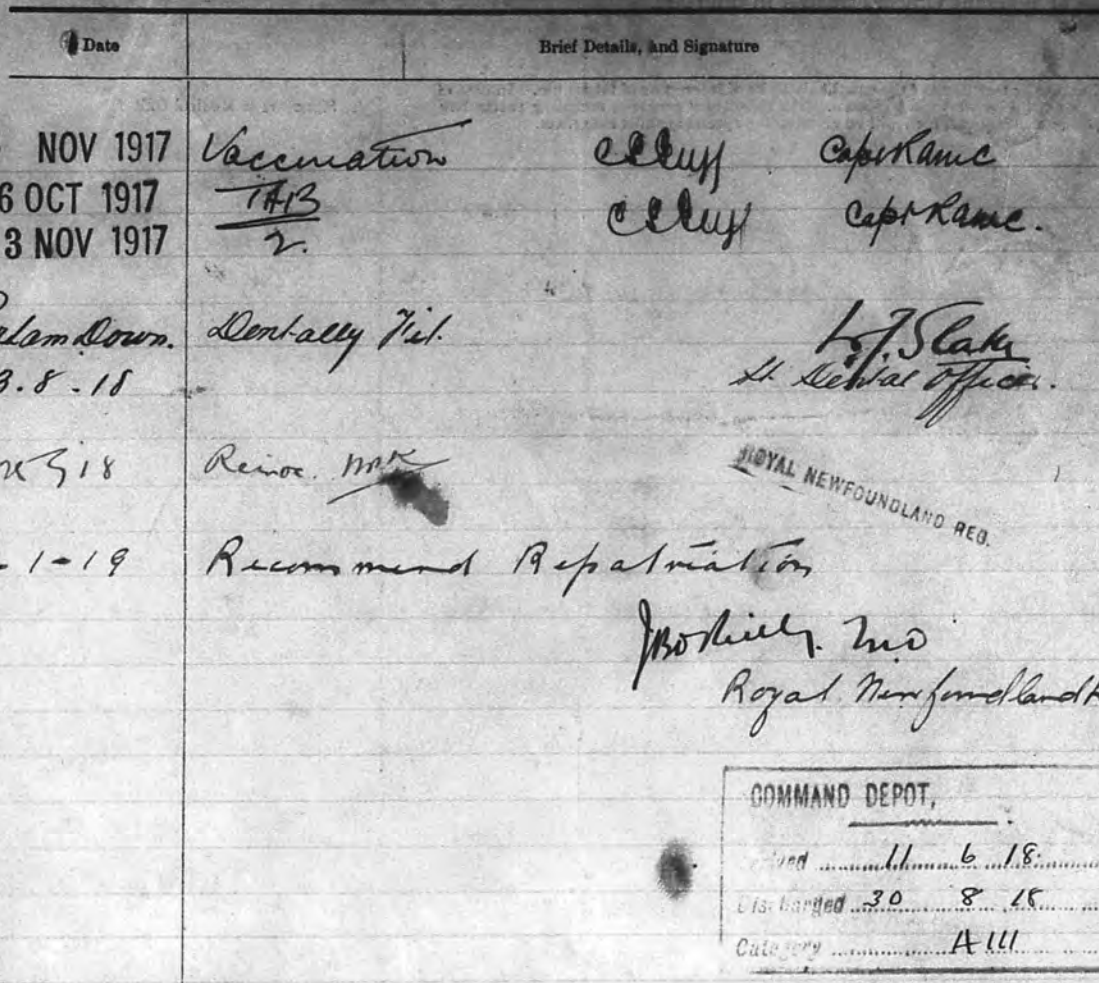 Date Brief Details, and Signature
NOV 1917 Vaccination Capt Ramc
6 OCT 1917 TAB Capt Ramc.
3 NOV 1917 2.
Down. Dentally Fit. L.J. Slater
3.8.18 Lt Dental Officer.
18
ROYAL NEWFOUNDLAND REG.
1-19 Recommend Repatriation
MO
Royal Newfoundland R
COMMAND DEPOT,
11 6 18.
Discharged 30 8 18
Category A III